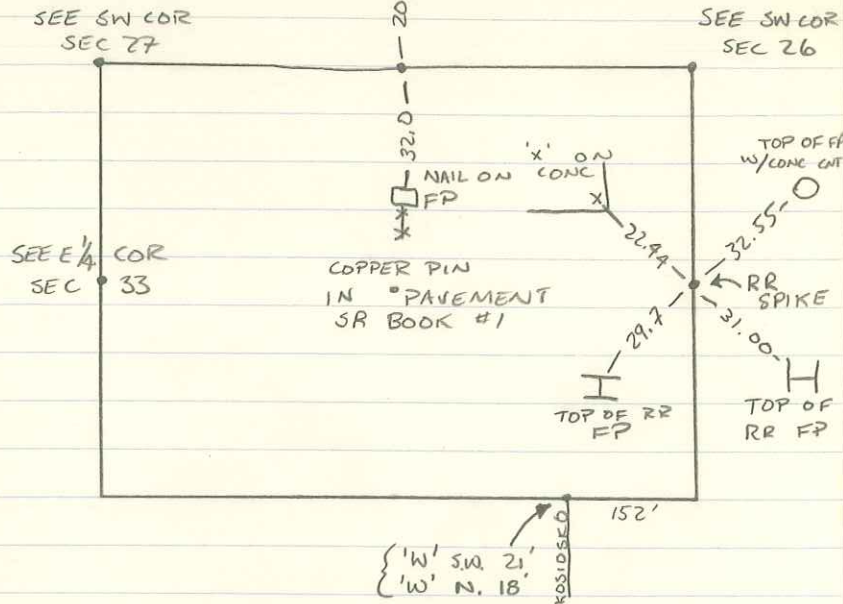 SEE SW COR
SEC 27
20
SEE SW COR
SEC 26
32.0
NAIL ON
FP
'X' ON
CONC
X
TOP OF FP
W/CONC CNT
22.44
32.55
SEE E 1/4 COR
SEC 33
COPPER PIN
IN PAVEMENT
SR BOOK #1
RR
SPIKE
29.7
31.00
TOP OF RR
FP
TOP OF
RR FP
152'
{ 'W' S.W. 21'
{ 'W' N. 18'
KOSIOSKO